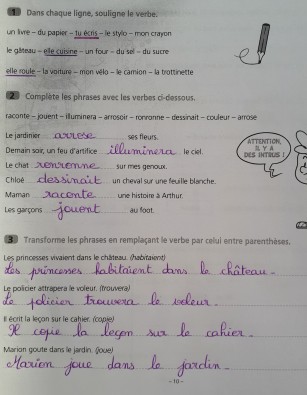 1 Dans chaque ligne, souligne le verbe.
un livre – du papier – tu écris – le stylo – mon crayon
le gâteau – elle cuisine – un four – du sel – du sucre
elle roule – la voiture – mon vélo – le camion – la trottinette
2 Complète les phrases avec les verbes ci-dessous.
raconte – jouent – illuminera – arrosoir – ronronne – dessinait – couleur – arrose
Le jardinier arrose ses fleurs.
Demain soir, un feu d'artifice illuminera le ciel.
Le chat ronronne sur mes genoux.
Chloé dessinait un cheval sur une feuille blanche.
Maman raconte une histoire à Arthur.
Les garçons jouent au foot.
ATTENTION,
IL Y A
DES INTRUS !
3 Transforme les phrases en remplaçant le verbe par celui entre parenthèses.
Les princesses vivaient dans le château. (habitaient)
Les princesses habitaient dans le château.
Le policier attrapera le voleur. (trouvera)
Le policier trouvera le voleur.
Il écrit la leçon sur le cahier. (copie)
Il copie la leçon sur le cahier.
Marion goute dans le jardin. (joue)
Marion joue dans le jardin.
– 10 –